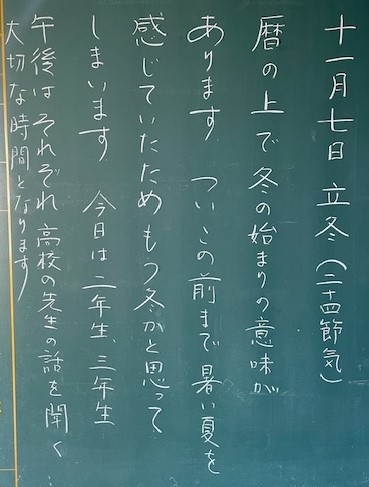 十一月七日 立冬(二十四節気)
暦の上で冬の始まりの意味が
あります ついこの前まで暑い夏を
感じていたため もう冬かと思って
しまいます 今日は二年生、三年生
午後は それぞれ 高校の先生の話を聞く
大切な時間となります